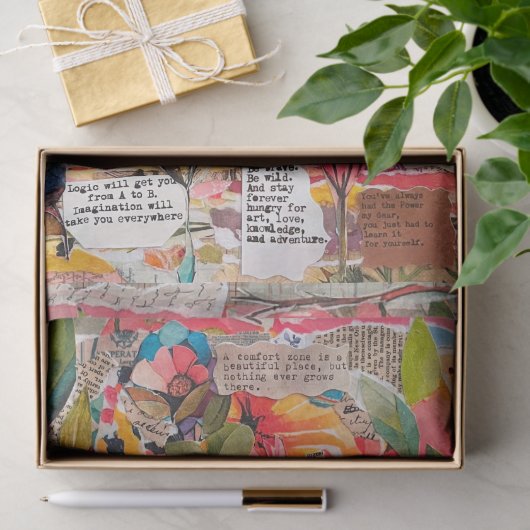 Logic will get you
from A to B.
Imagination will
take you everywhere
Be wild.
And stay
forever
hungry for
art, love,
knowledge,
and adventure.
You've always
had the Power
my dear,
you just had to
learn it
for yourself.
PERAT
A comfort zone is a
beautiful place, but
nothing ever grows
there.